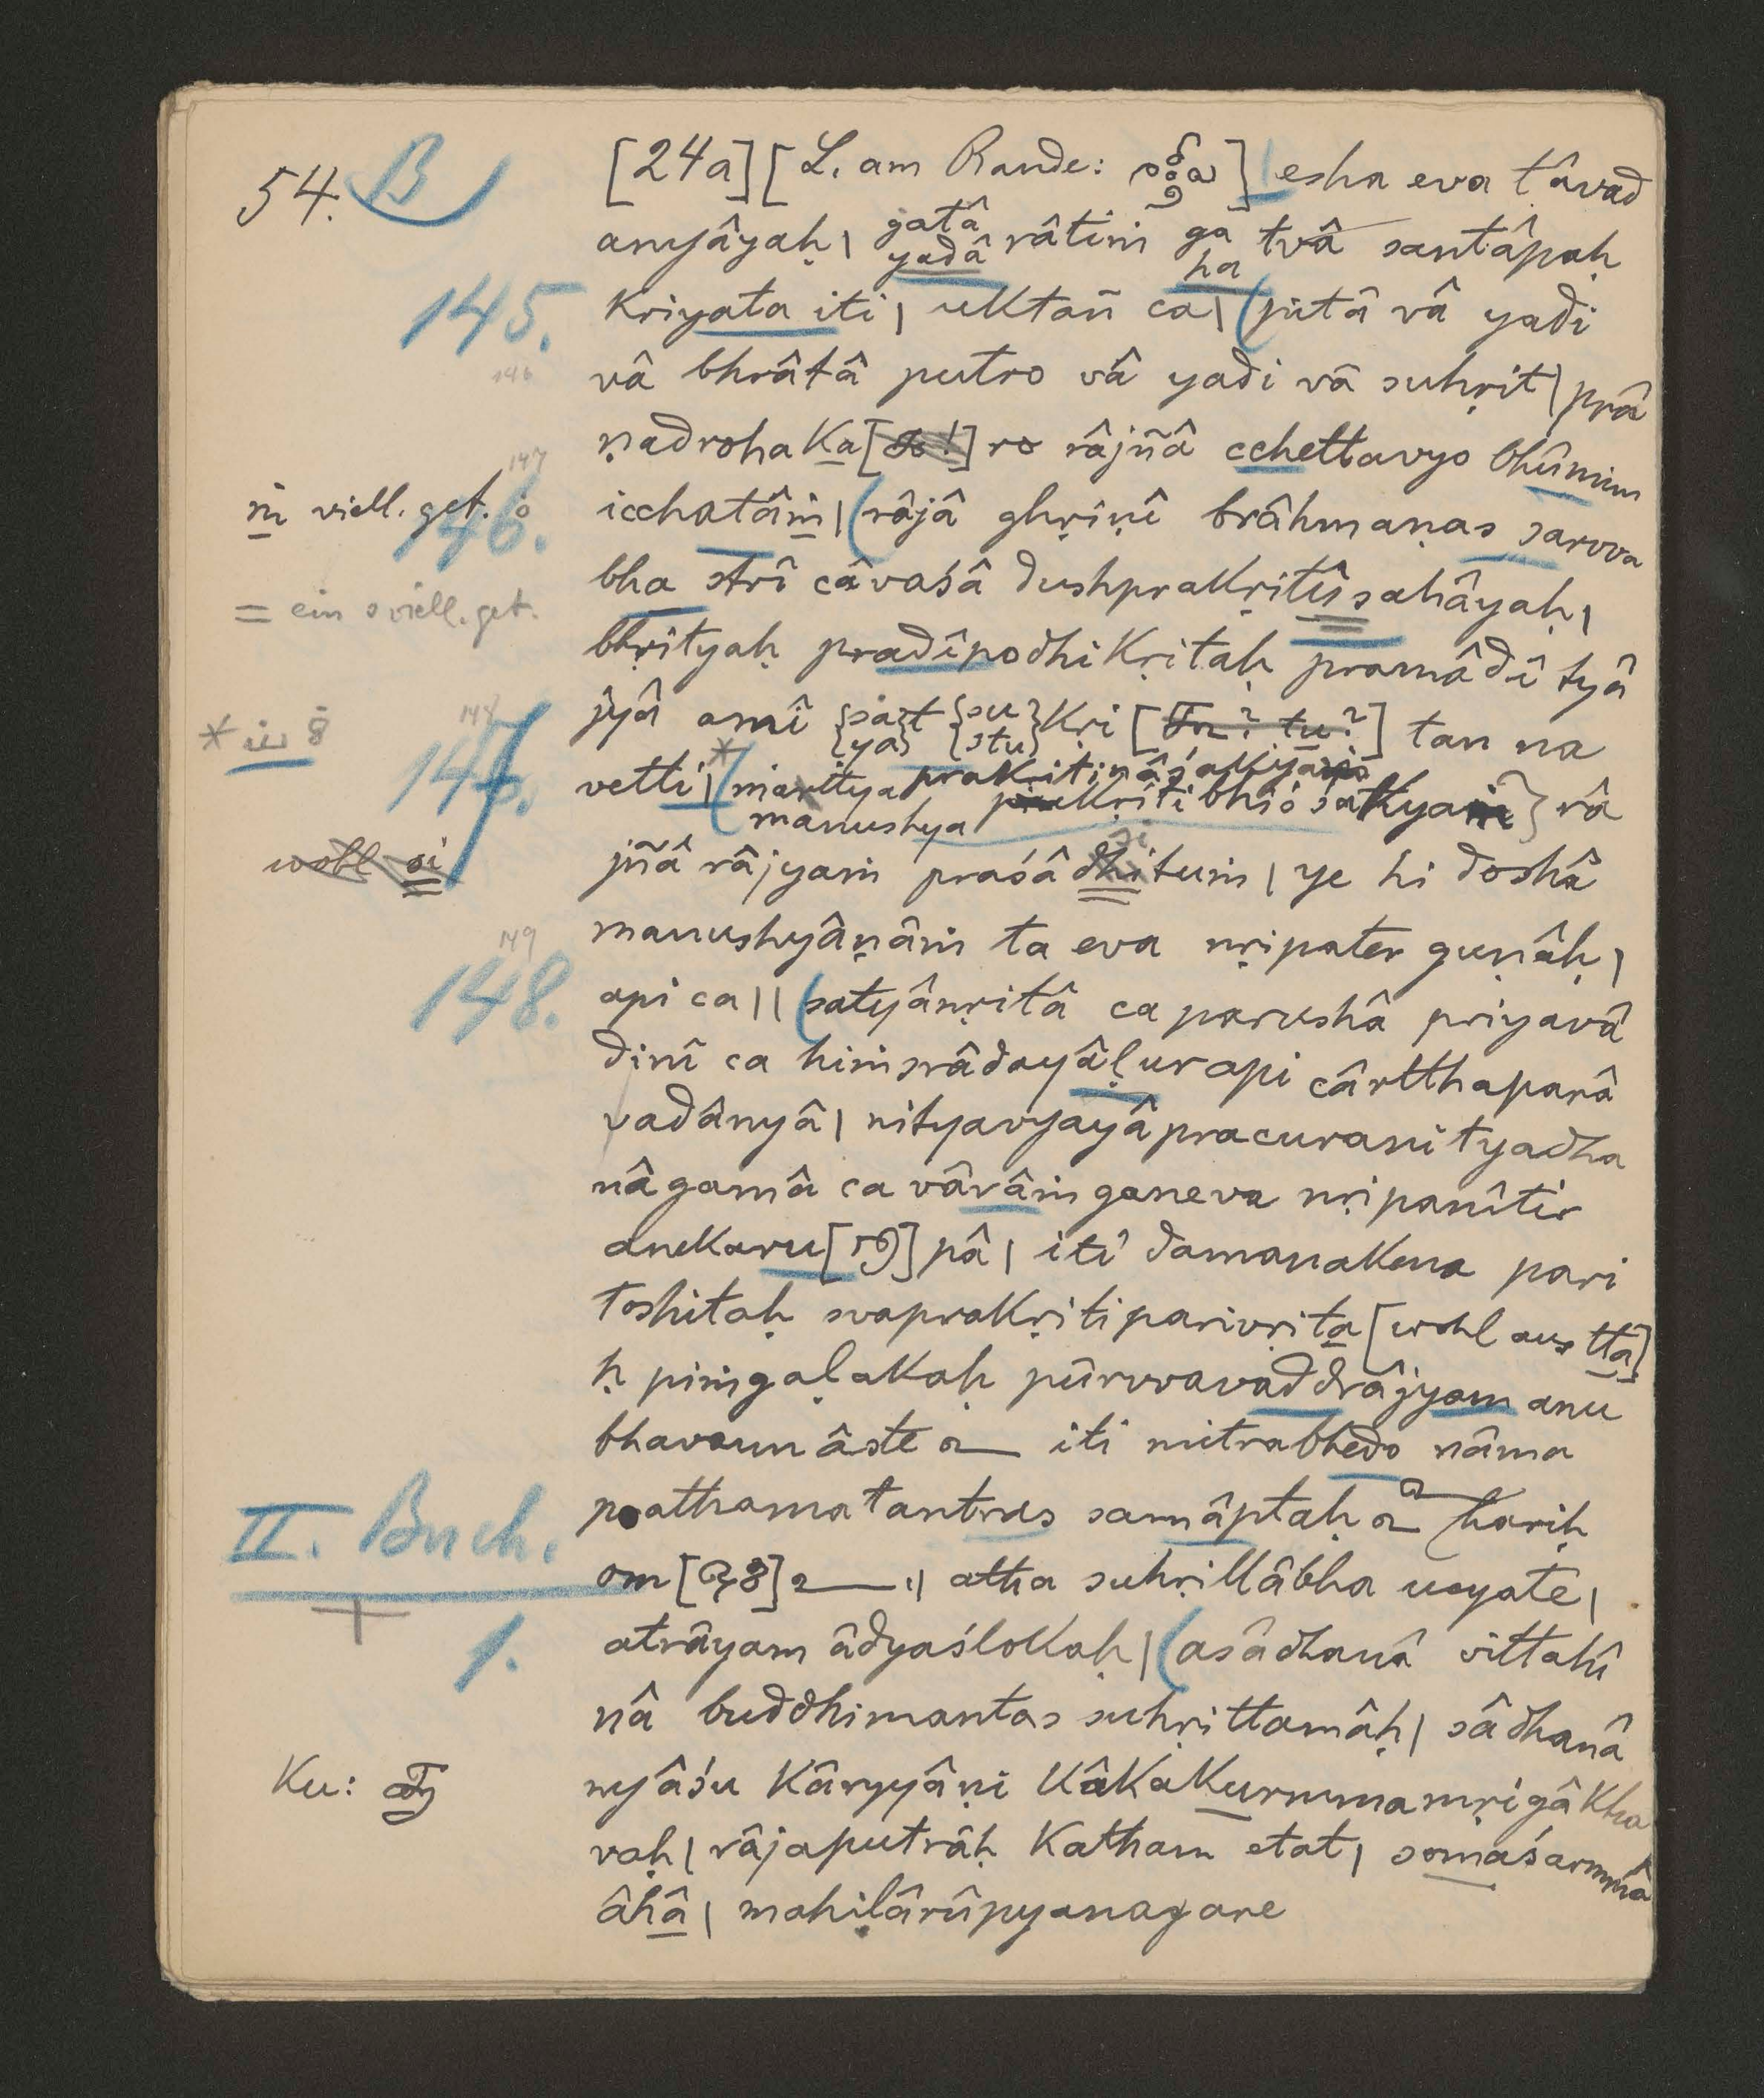 54. B
[24a] [L. am Rande: ] esha eva tâvad
anyâyaḥ | gatâ yadâ râtiṁ ga ha tvâ santâpaḥ
145.
kriyata iti | uktañ ca | (pitâ vâ yadi
146
vâ bhrâtâ putro vâ yadi vâ suhṛit | prâ
147
ṇadrohaka[] ro râjñâ cchettavyo bhûmim
ṁ viell. get. 146.
icchatâṁ | (râjâ ghṛiṇî brâhmaṇas sarvva
= ein s viell. get.
bha strî câvaśâ dushprakṛitîs sahâyaḥ |
bhṛityaḥ pradîpodhikṛitaḥ pramâdî tyâ
* iu 8 148 147.
jyâ amî {sa ya}t {su stu}kṛi [tu? tu?] tan na
vetti | *(martya manushya prakṛitinâśakyaṁ prakṛitibhiś śakyaṁ} râ
wohl si
jñâ râjyaṁ praśâdhitum si | ye hi doshâ
manushyâṇâṁ ta eva nṛipater guṇâḥ |
149 148.
api ca || (satyânṛitâ ca parushâ priyavâ
dinî ca hiṁsrâdayâḷur api cârtthaparâ
vadânyâ | nityavyayâ pracuranityadha
nâgamâ ca vârâṁganeva nṛipanîtir
anekaru[] pâ | iti damanakena pari
toshitaḥ svaprakṛitiparivṛita [wohl aus ttâ]
ḥ piṁgaḷakaḥ pûrvvavad drâjyam anu
bhavann âste iti mitrabhedo nâma
prathamatantras samâptaḥ hariḥ
II. Buch.
om [] || atha suhṛillâbha ucyate |
1.
atrâyam âdyaślokaḥ | (asâdhanâ vittahî
nâ buddhimantas suhṛittamâḥ | sâdhanâ
Ku:
nyâśu kâryyâṇi kâkakurmmamṛigâkha
vaḥ | râjaputrâḥ katham etat | somaśarmmâ
âhâ | mahiḷârûpyanagare